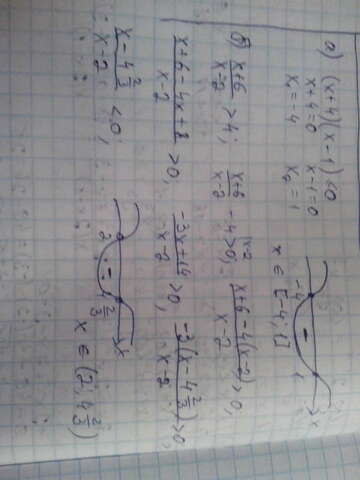 а) (x+4)(x-1)<0
x+4=0 x-1=0
x₁=4 x₂=1
-4 - 1 x
x ∈ [-4; 1]
б) x+6/x-2 > 4; x+6/x-2 - 4 > 0; x+6-4(x-2)/x-2 > 0,
x+6-4x+8/x-2 > 0, -3x+14/x-2 > 0, -3(x-4 2/3)/x-2 > 0,
x-4 2/3/x-2 < 0,
2 - 4 2/3 x
x ∈ (2; 4 2/3)